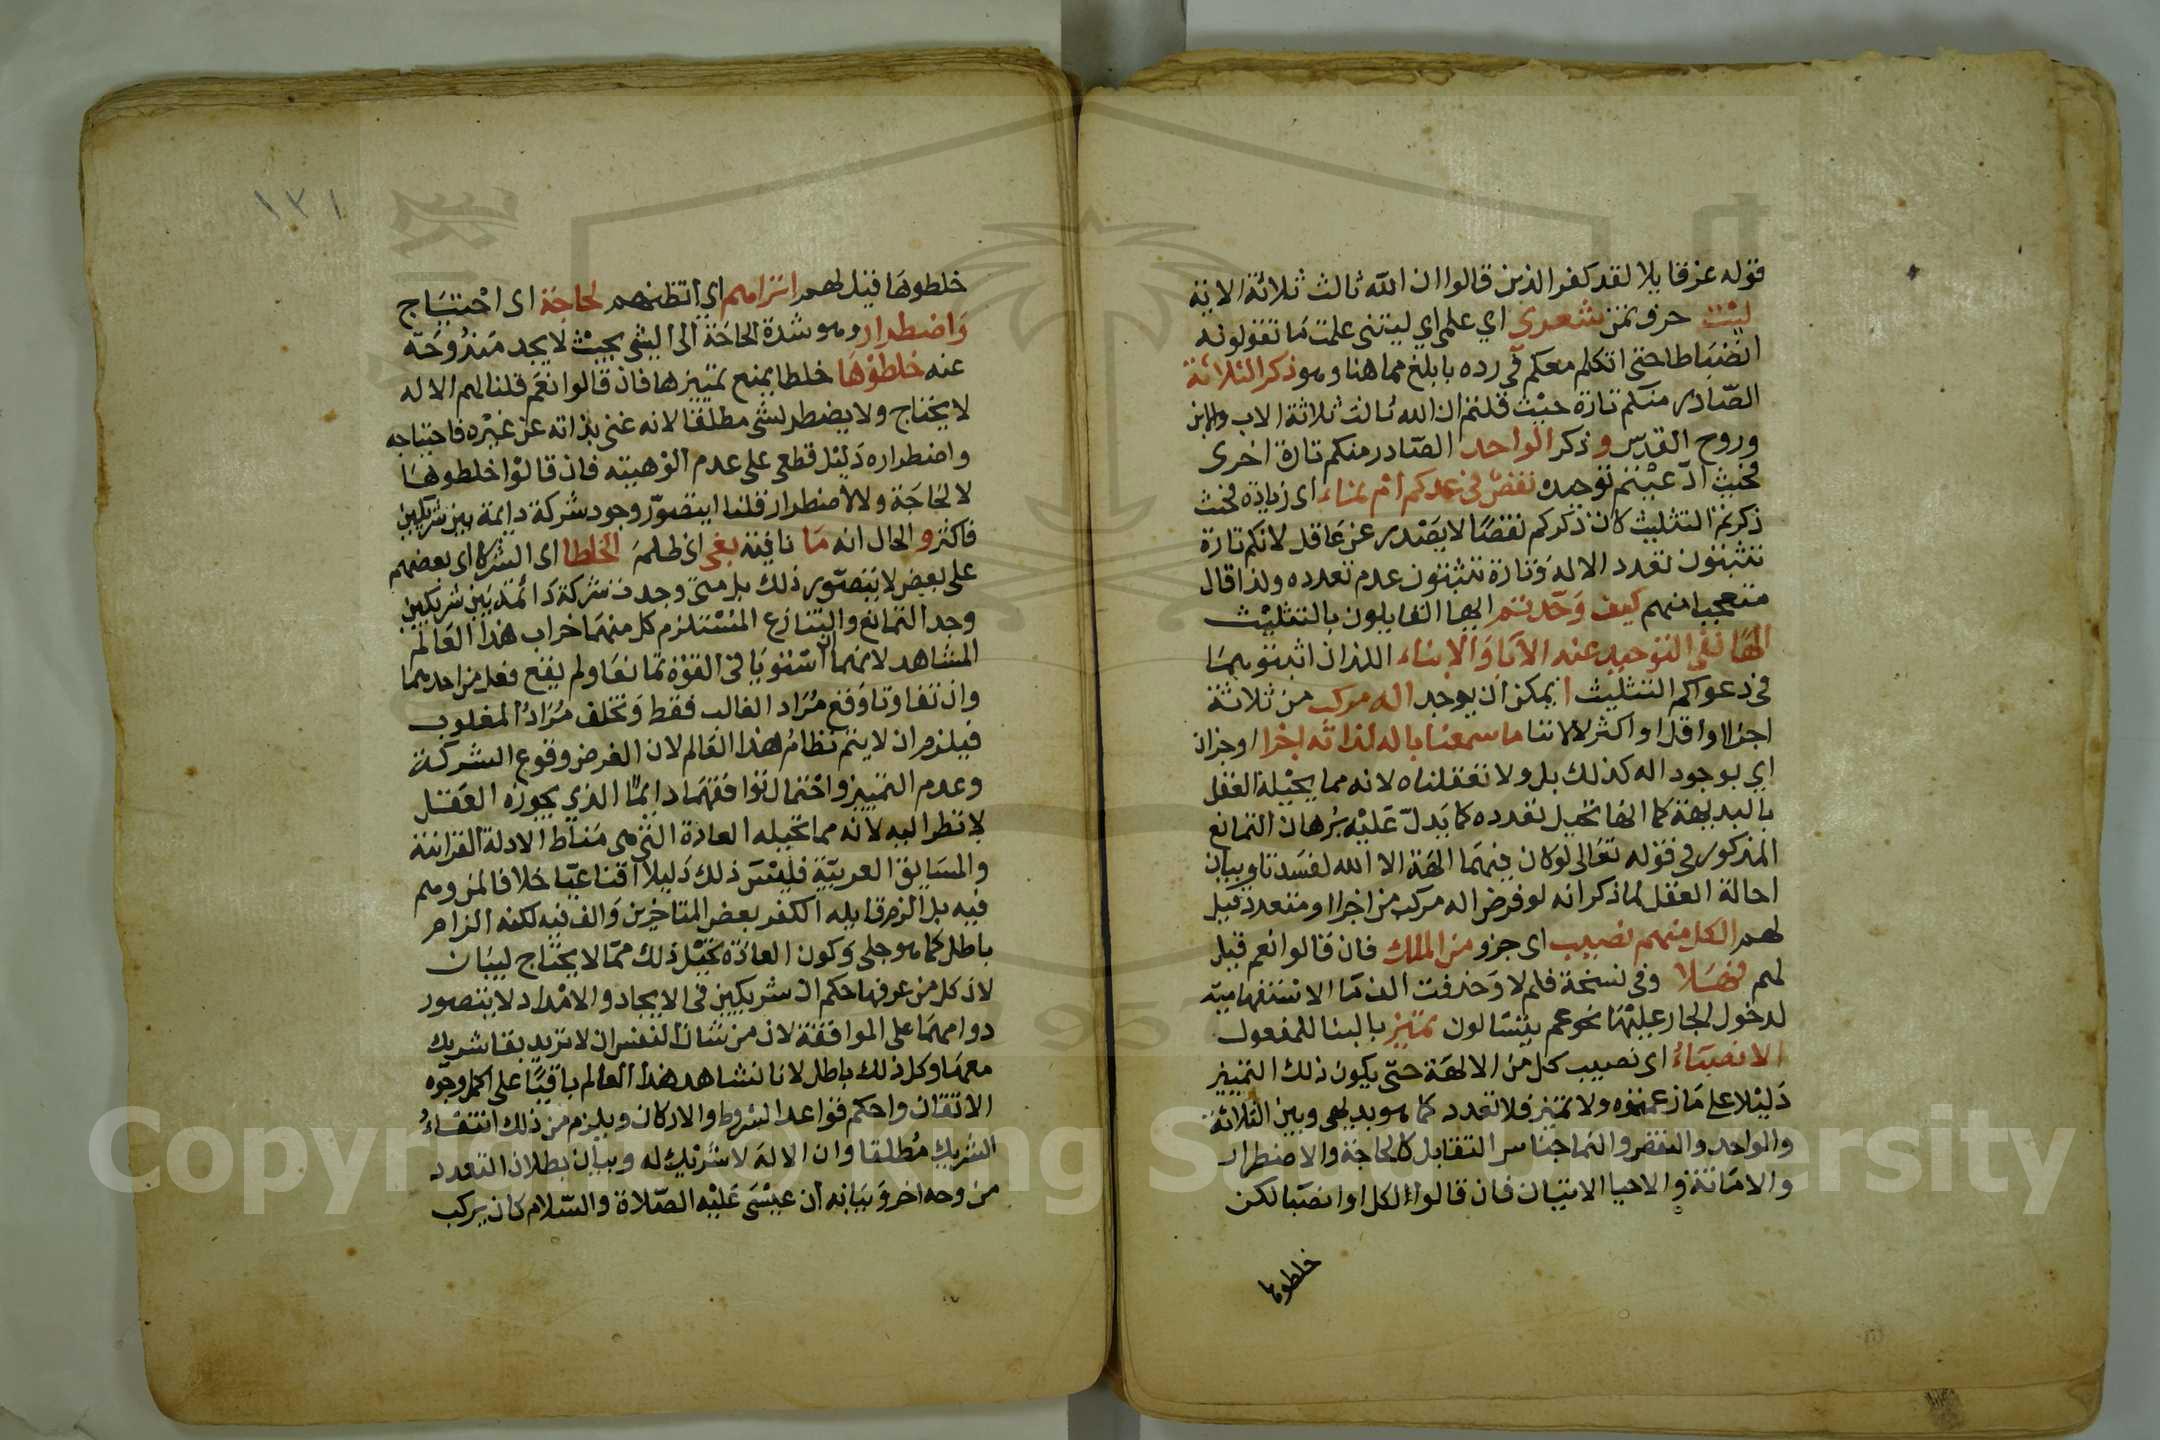 قوله عز قايلا لقد كفر الذين قالوا ان الله ثالث ثلاثة الاية
ليت حرف تمن شعري اي علمي اي ليتني علمت ما تقولونه
انضباطا حتى اتكلم معكم في رده بابلغ مما هنا وهو ذكر الثلاثة
الصادر منكم تارة حيث قلتم ان الله ثالث ثلاثة الاب والابن
وروح القدس و ذكر الواحد الصادر منكم تارة اخرى
فحيث ادعيتم توحيده نقص في عدكم ام نماء اي زيادة فحيث
ذكرتم التثليث كان ذكركم نقصا لا يصدر عن عاقل لانكم تارة
تثبتون تعدد الاله وتارة تثبتون عدم تعدده ولذا قال
متعجبا منهم كيف وحدتم ايها القايلون بالتثليث
الها نفي التوحيد عنه الآبا والابناء اللذان اثبتوهما
في دعواكم التثليث ا يمكن ان يوجد اله مركب من ثلاثة
اجزا او اقل او اكثر لا لاننا ما سمعنا باله لذاته اجزا او جزان
اي بوجود اله كذلك بل ولا تعقلناه لانه مما يحيله العقل
بالبديهة كما انها تحيل تعدده كما يدل عليه برهان التمانع
المذكور في قوله تعالى لو كان فيهما الهة الا الله لفسدتا وبيان
احالة العقل لما ذكر انه لو فرض اله مركب من اجزا او متعدد قيل
لهم الكل منهم نصيب اي جزو من الملك فان قالوا نعم قيل
لهم فهلا وفي نسخة فلم لا وحذفت الف ما الاستفهامية
لدخول الجار عليها نحو عم يتسالون تميز بالبنا للمفعول
الانصباء اي نصيب كل من الالهة حتى يكون ذلك التمييز
دليلا على ما زعمتموه ولا تميز فلا تعدد كما هو بديهي وبين الثلاثة
والواحد والنقص والنما جناس التقابل كالحاجة والاضطرار
والاماتة والاحيا الاتيان فان قالوا لكل اوا نصبا لكن
خلطوها
١٣١
خلطوها قيل لهم اتراهم اي اتظنهم لحاجة اي احتياج
واضطرار وهو شدة الحاجة الى الشي بحيث لا يجد مندوحة
عنه خلطوها خلطا يمنع تمييزها فان قالوا نعم قلنا لهم الاله
لا يحتاج ولا يضطر لشي مطلقا لانه غني بذاته عن غيره فاحتياجه
واضطراره دليل قطعي على عدم الوهيته فان قالوا خلطوها
لا لحاجة ولا لاضطرار قلنا ايتصور وجود شركة دايمة بين شريكين
فاكثر و الحال انه ما نافية بغى اي ظلم الخلطا اي الشركا اي بعضهم
على بعض لا يتصور ذلك بل متى وجدت شركة دائمة بين شريكين
وجد التمانع والتنازع المستلزم كل منهما خراب هذا العالم
المشاهد لانهما ان استويا في القوة تمانعا ولم يقع فعل من احدهما
وان تفاوتا وقع مراد الغالب فقط وتخلف مراد المغلوب
فيلزم ان لا يتم نظام هذا العالم لان الفرض وقوع الشركة
وعدم التمييز واحتمال توافقهما دايما الذي يجوزه العقل
لا نظر اليه لانه مما تحيله العادة التي هي مناط الادلة القرانية
والمسايق العربية فليس ذلك دليلا اقناعيا خلافا لمن وهم
فيه بل الزم قايله الكفر بعض المتاخرين والف فيه لكنه الزام
باطل كما هو جلي وكون العادة تحيل ذلك مما لا يحتاج لبيان
لان كل من عرفها حكم ان شريكين في الايجاد والامداد لا يتصور
دوامهما على الموافقة لان من شان النفس ان لا تريد بقا شريك
معها وكل ذلك باطل لانا نشاهد هذا العالم باقيا على اكمل وجوه
الاتقان واحكم قواعد الشروط والاركان ويلزم من ذلك انتفاء
الشريك مطلقا وان الاله لا شريك له وبيان بطلان التعدد
من وجه اخر وبيانه ان عيسى عليه الصلاة والسلام كان يركب
Copyright © King Saud University